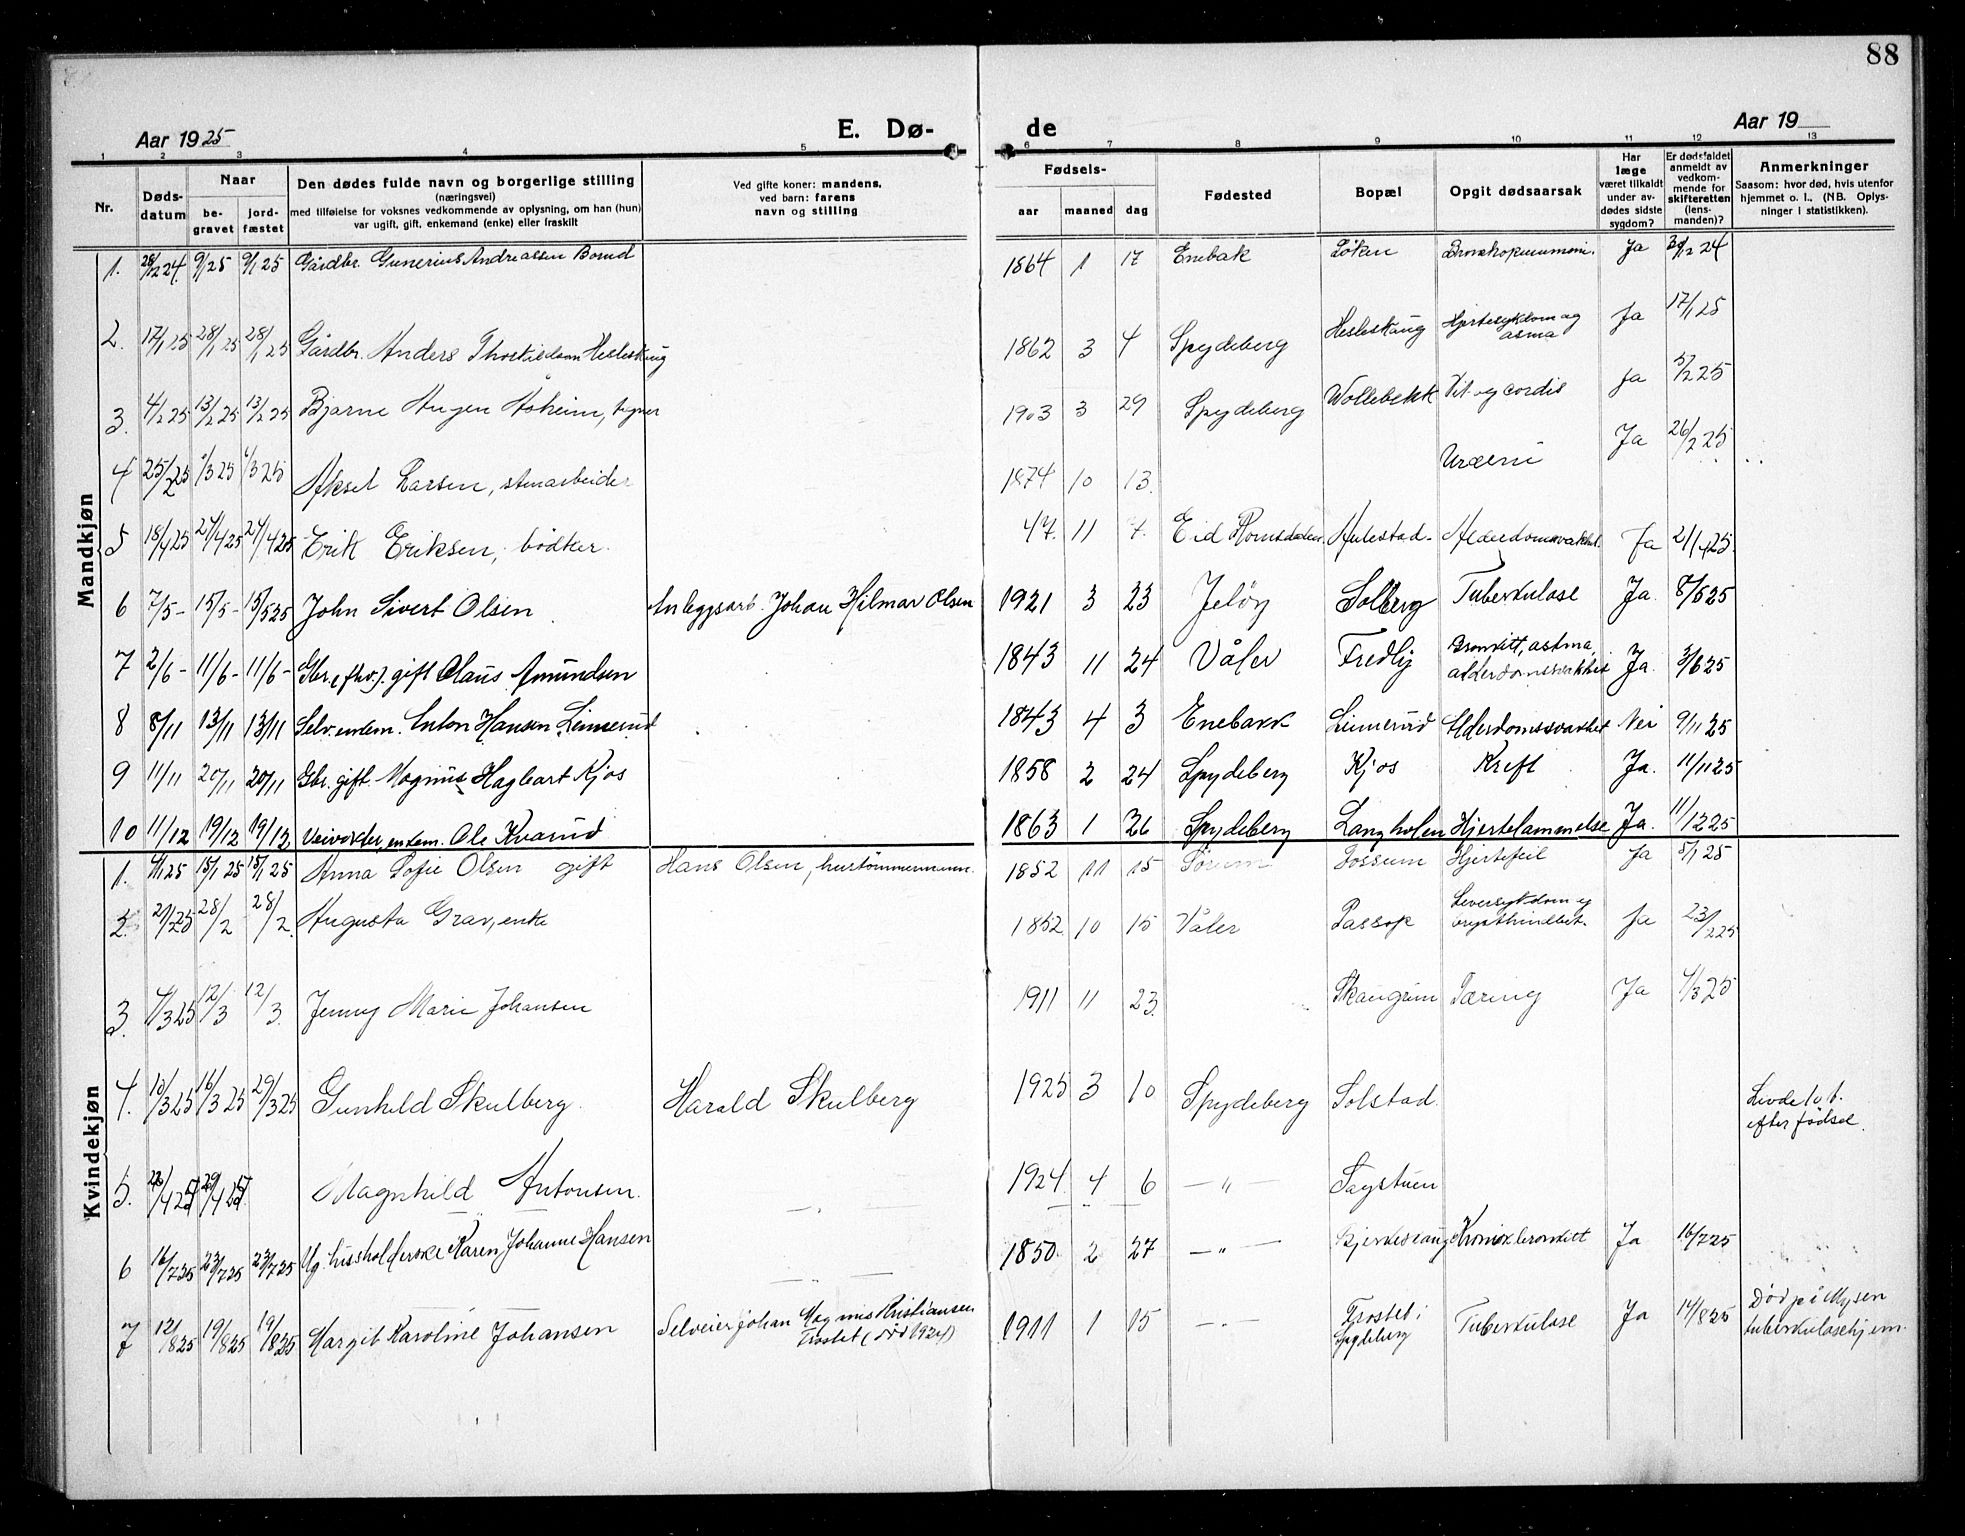 88
Aar 1925 E. Dø- de Aar 19
1 2 3 4 5 6 7 8 9 10 11 12 13
Nr. Døds-datum Naar be-gravet jord-fæstet Den dødes fulde navn og borgerlige stilling (næringsvei) med tilføielse for voksnes vedkommende av oplysning, om han (hun) var ugift, gift, enkemand (enke) eller fraskilt Ved gifte koner: mandens, ved barn: farens navn og stilling Fødsels- aar maaned dag Fødested Bopæl Opgit dødsaarsak Har læge været tilkaldt under av-dødes sidste sygdom? Er dødsfaldet anmeldt av vedkom-mende for skifteretten (lens-manden)? Anmerkninger Saasom: hvor død, hvis utenfor hjemmet o. l., (NB. Oplys-ninger i statistikken).
Mandkjøn
1. 28/12 24. 9/1 25 9/1 25 Gårdbr. Gunerius Andreassen Borud 1864 1 17 Enebak Løken Bronkopneumoni. Ja 30/12 24
2. 17/1 25 28/1 25 28/1 25 Gårdbr. Anders Thorkildsen Hesleskaug 1862 3 4 Spydeberg Hesleskaug Hjertesykdom og asma Ja 17/1 25
3. 4/2 25 13/2 25 13/2 25 Bjarne Aagen Åsheim, tegner 1903 3 29 Spydeberg Wollebekk Vit. og cordis Ja 5/2 25
4 25/2 25 1/3 25 1/3 25 Aksel Larsen, stenarbeider 1874 10 13. Uræmi Ja 26/2 25
5 18/4 25 27/4 25 27/4 25 Erik Eriksen, bødker. 47. 11 7. Eid Romsdalen. Aulestad Alderdomssvakhet. Ja 21/4 25.
6 7/5 - 15/5 - 15/5 25 John Sivert Olsen Anleggsarb. Johan Hilmar Olsen 1921 3 23 Jeløy Solberg Tuberkulose Ja. 8/5 25
7 2/6 - 11/6 - 11/6 - Gbr. (fhv.) gift Olaus Amundsen 1843 11 24 Våler Fredly Bronkitt, astma, alderdomssvakhet Ja. 3/6 25
8 8/11 13/11 13/11 Selv. enkem. Anton Hansen Linnerud 1843 4 3 Enebakk Linnerud Alderdomssvakhet Nei 9/11 25
9 11/11 20/11 20/11 Gbr. gift. Magnus Hagbart Kjos 1858 2 24 Spydeberg Kjos Kreft Ja. 11/11 25
10 11/12 19/12 19/12 Veivokter, enkem. Ole Kvarud 1863 1 26 Spydeberg Langholen Hjertelammelse Ja. 11/12 25
Kvindekjøn
1. 4/1 25 15/1 25 15/1 25 Anna Sofie Olsen gift Hans Olsen, hustømmermann. 1852 11 15 Sørum Fossum Hjertefeil Ja 5/1 25
2. 21/2 25 28/2 28/2. Augusta Grav, enke 1852 10 15 Våler Passop Leversykdom og brysthindbet. Ja 23/2 25
3. 4/3 25 12/3 12/3. Jenny Marie Johansen 1911 11 23. Skaugrim Tæring Ja 4/3 25
4. 10/3 25 16/3 25 29/3 25 Gunhild Skulberg. Harald Skulberg 1925 3 10 Spydeberg Solstad. Levde 1 o t. efter fødsel.
5. 4 25 29/4 25 Magnhild Antonsen. 1924 4 6 — „ — Sagstuen
6 16/7 25 23/7 25 23/7 25 Ug. husholderske Karen Johanne Hansen 1850 2 27 — „ — Bjerkeseaug Kronisk bronkitt Ja 16/7 25
7 12/8 25 19/8 25 19/8 25 Margit Karoline Johansen Selveier Johan Magnus Kristiansen Frostet (død 1924) 1911 1 15 — „ — Frostet i Spydeberg Tuberkulose Ja 14/8 25 Död på Mysen tuberkulosehjem.